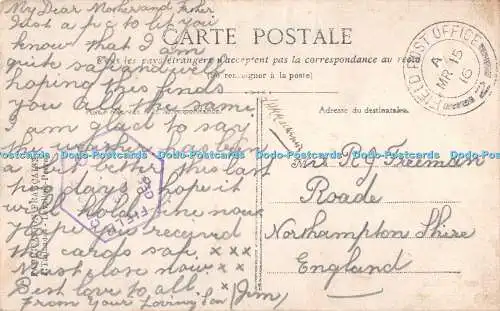 My Dear Mother and Father
Just a p.c to let you
know that I am
quite safe and well
hoping this finds
you all the same
I am glad to say
the weather has been
a lot better this last
few days I hope it
will hold fine now
Hope you received
the cards safe x x x
Must close now x x x
Best love to all.
From Your Loving Son (Jim)
CARTE POSTALE
Tous les pays étrangers n'acceptent pas la correspondance au recto
(se renseigner à la poste)
Adresse du destinataire.
FIELD POST OFFICE
A
MR 15
16
Mrs R G Freeman
Roade
Northampton Shire
England
Dodo-Postcards Dodo-Postcards Dodo-Postcards Dodo-Postcards Dodo-Postcards